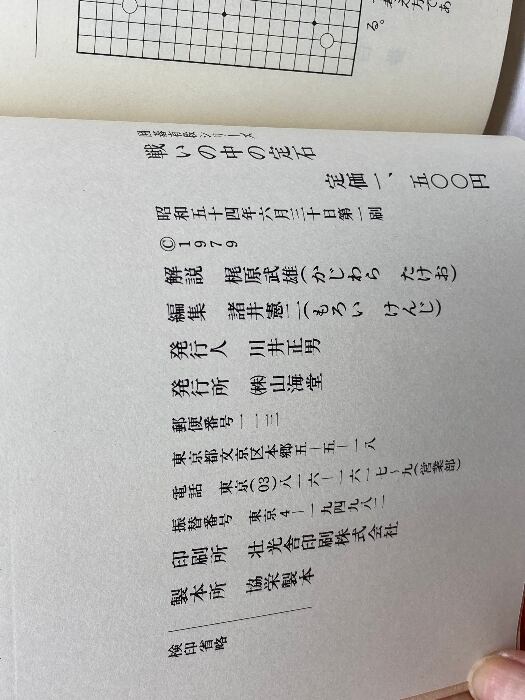 る。
囲碁有段シリーズ
戦いの中の定石
定価一、五〇〇円
昭和五十四年六月三十日第一刷
©1979
解説 梶原武雄(かじわら たけお)
編集 諸井憲二(もろい けんじ)
発行人 川井正男
発行所 ㈱山海堂
郵便番号一一三
東京都文京区本郷五ー五ー一八
電話 東京(03)八一六ー一六一七〜九(営業部)
振替番号 東京4ー一九四九八二
印刷所 壮光舎印刷株式会社
製本所 協栄製本
検印省略